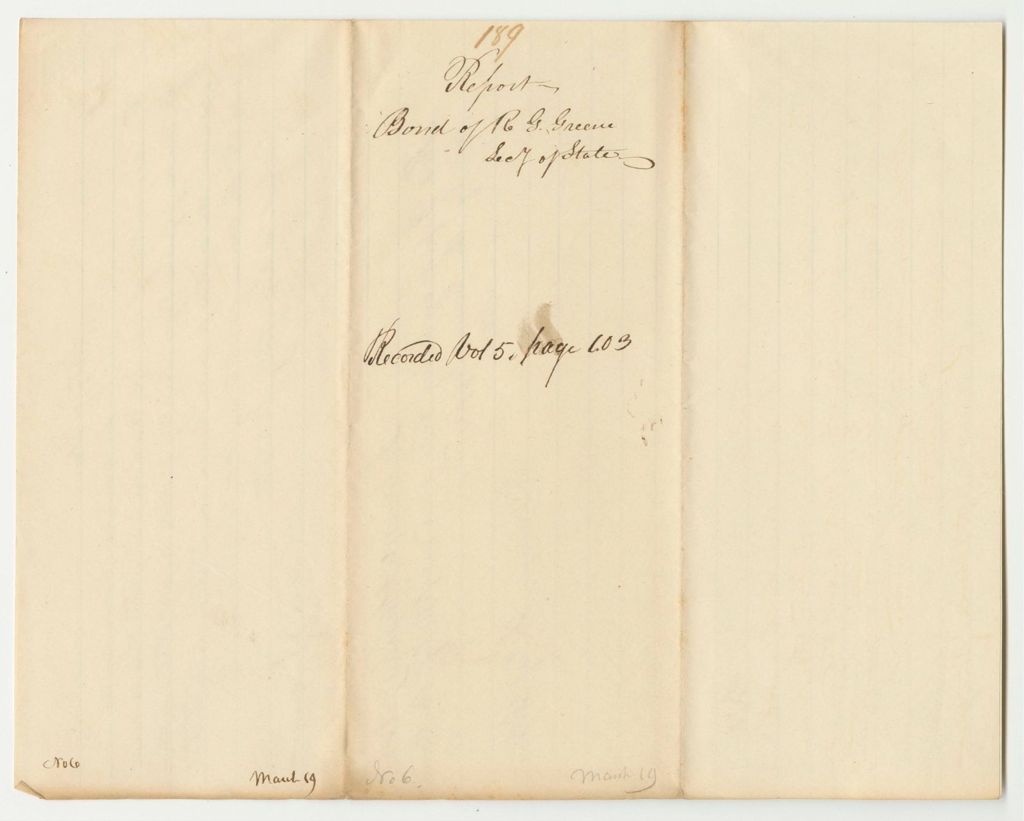 189
Report
Bond of R G. Greene
Secy of State
Recorded Vol 5. page 103
No 6
March 19
No 6.
March 19